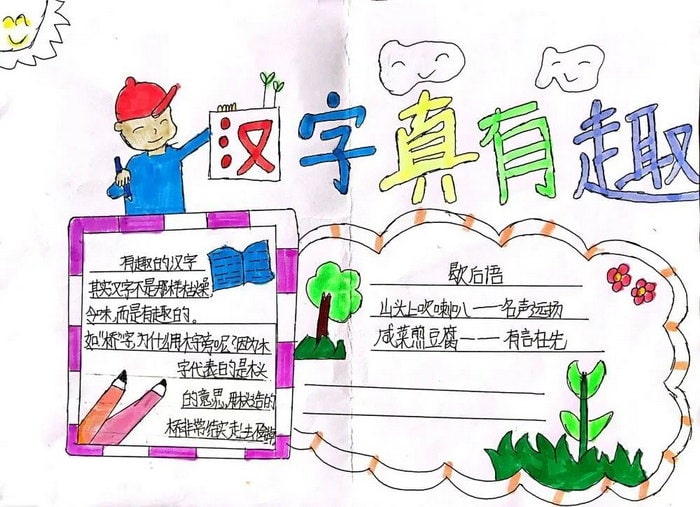 汉字真有趣
有趣的汉字
其实汉字不是那样枯燥,
令味,而是有趣的。
如"桥"字,为什么用木字旁呢?因为木
字代表的是木头
的意思,用木造的
桥非常结实,走去
歇后语
山头上吹喇叭——名声远扬
咸菜煎豆腐——有言在先